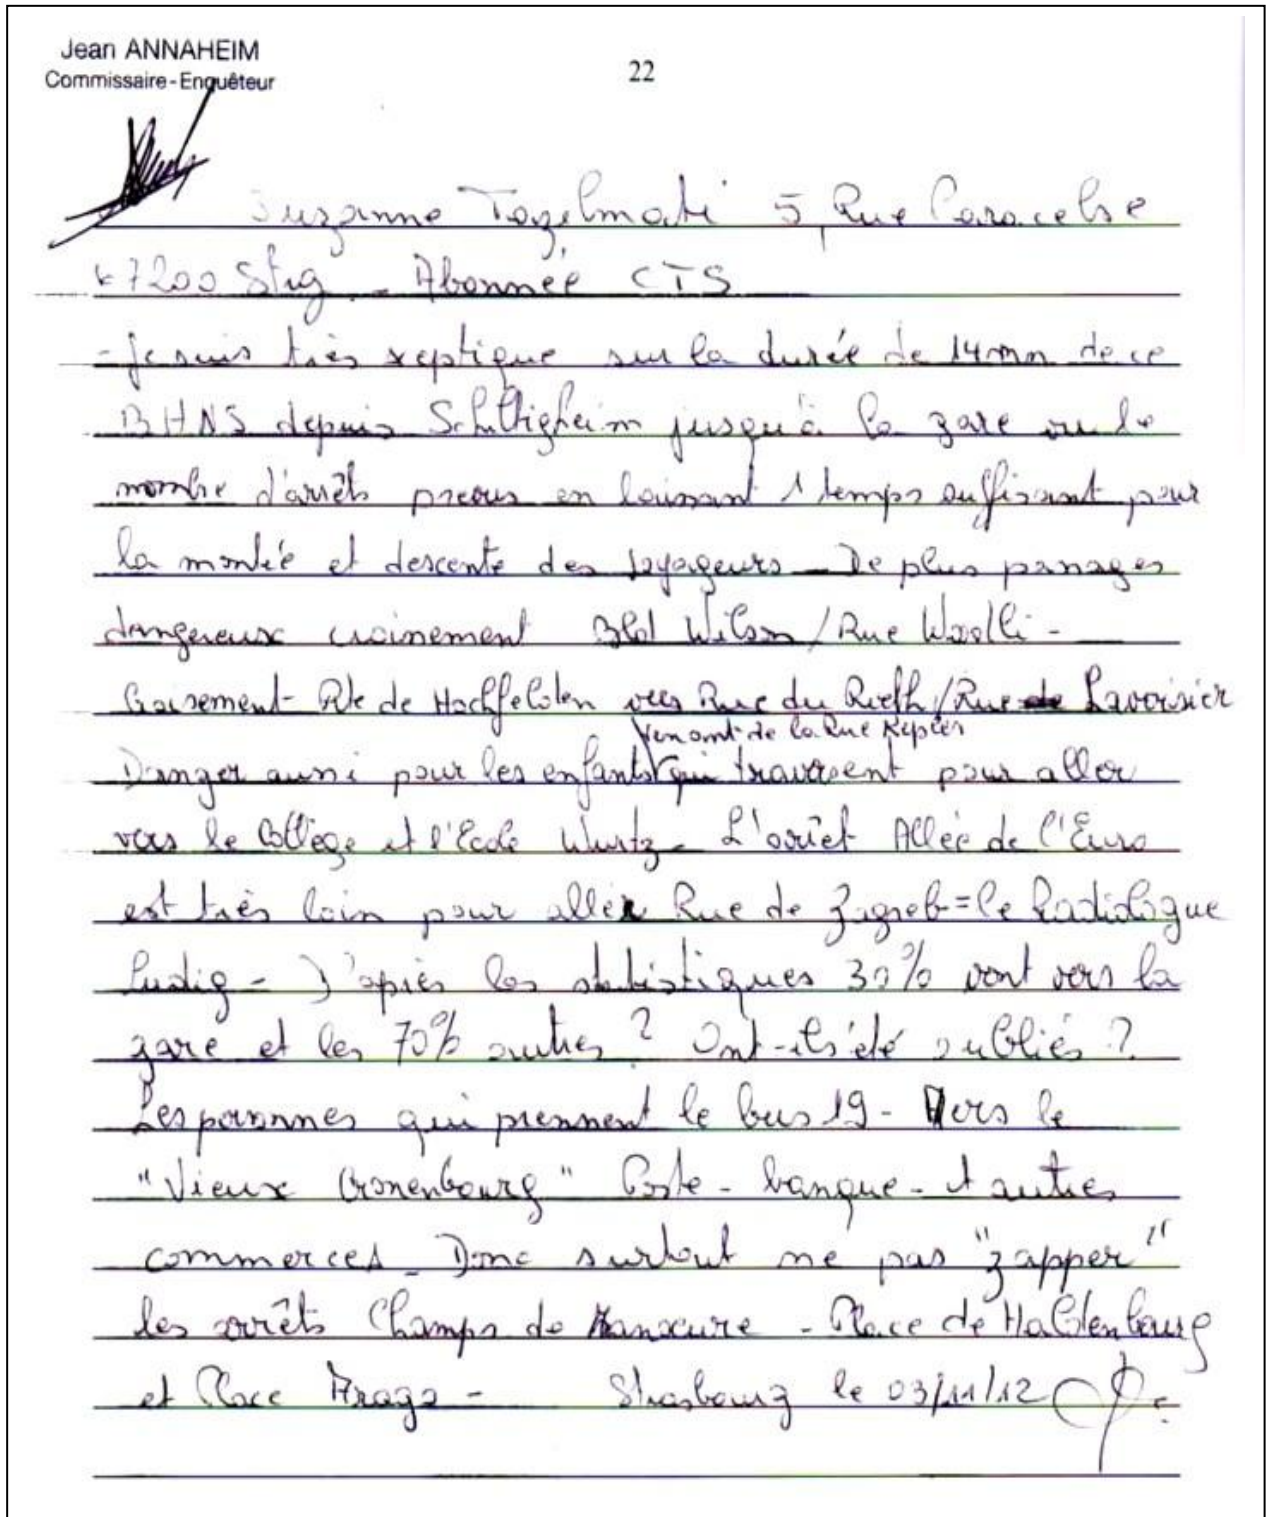 Jean ANNAHEIM
Commissaire-Enquêteur
22
Suzanne 5, Rue Paracelse
67200 Stbg - Abonnée CTS
- Je suis très xeptique sur la durée de 14mn de ce
BHNS depuis Schiltigheim jusqu'à la gare vu le
nombre d'arrêts prévus en laissant 1 temps suffisant pour
la montée et descente des voyageurs - De plus passages
dangereux croisement Bld Wilson / Rue Woelfli -
Croisement Rte de Hochfelden vers Rue du Rieth / Rue Lavoisier
venant de la Rue Kepler
Danger aussi pour les enfants qui traversent pour aller
vers le Collège et l'Ecole Wurtz - L'arrêt Allée de l'Euro
est très loin pour aller Rue de Zagreb = le Radiologue
Ludig - D'après les statistiques 30% vont vers la
gare et les 70% autres ? Ont-ils été oubliés ?
Les personnes qui prennent le bus 19 - Vers le
"Vieux Cronenbourg" Poste - banque - et autres
commerces - Donc surtout ne pas "zapper"
les arrêts Champs de Manœuvre - Place de Haldenbourg
et Place Arago - Strasbourg le 03/11/12